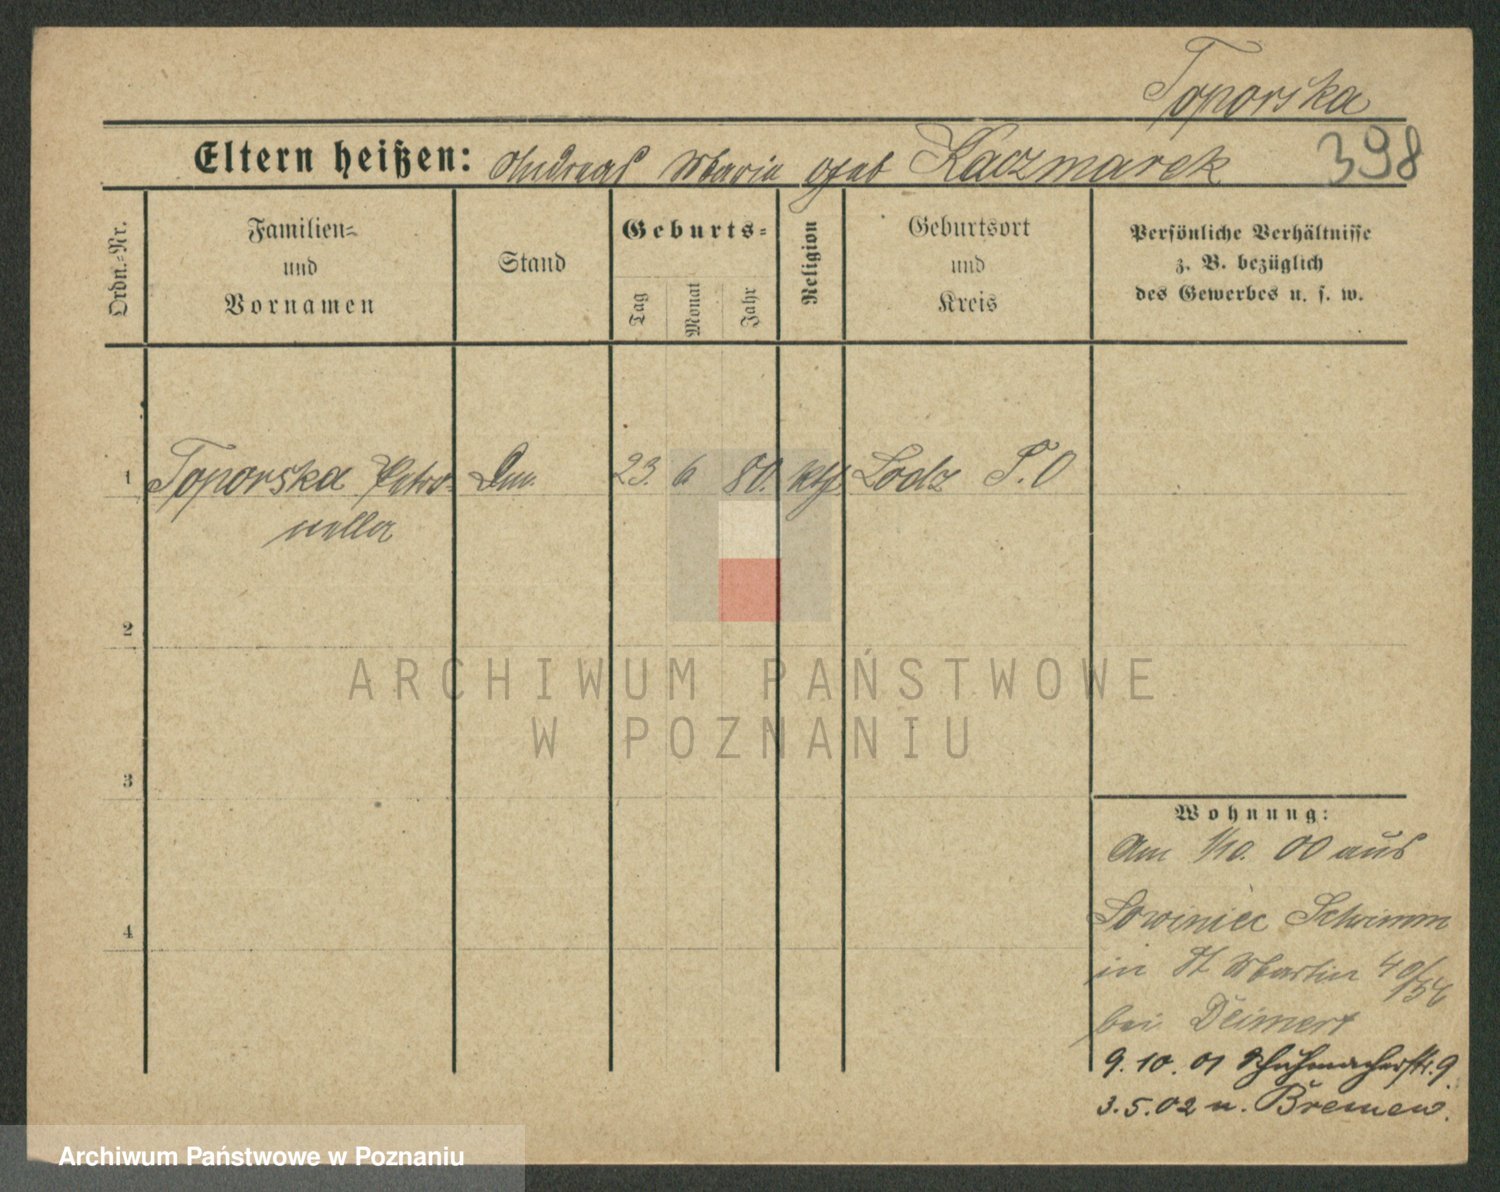 Toporska
Eltern heißen: Andreas Maria geb Kaczmarek 398
Ordn.-Nr.
Familien-
und
Vornamen
Stand
Geburts-
Tag
Monat
Jahr
Religion
Geburtsort
und
Kreis
Persönliche Verhältnisse
z. B. bezüglich
des Gewerbes u. s. w.
1 Toporska Petro- 23. 6 80. kth. Lodz
nella
2
3
4
Wohnung:
Am 1/10. 00 aus
Lowiniec Schrimm
in St Martin 40/
bei Deimert
9. 10. 01 Schuhmacherstr. 9
3. 5. 02 n. Bremen.
ARCHIWUM PAŃSTWOWE
W POZNANIU
Archiwum Państwowe w Poznaniu